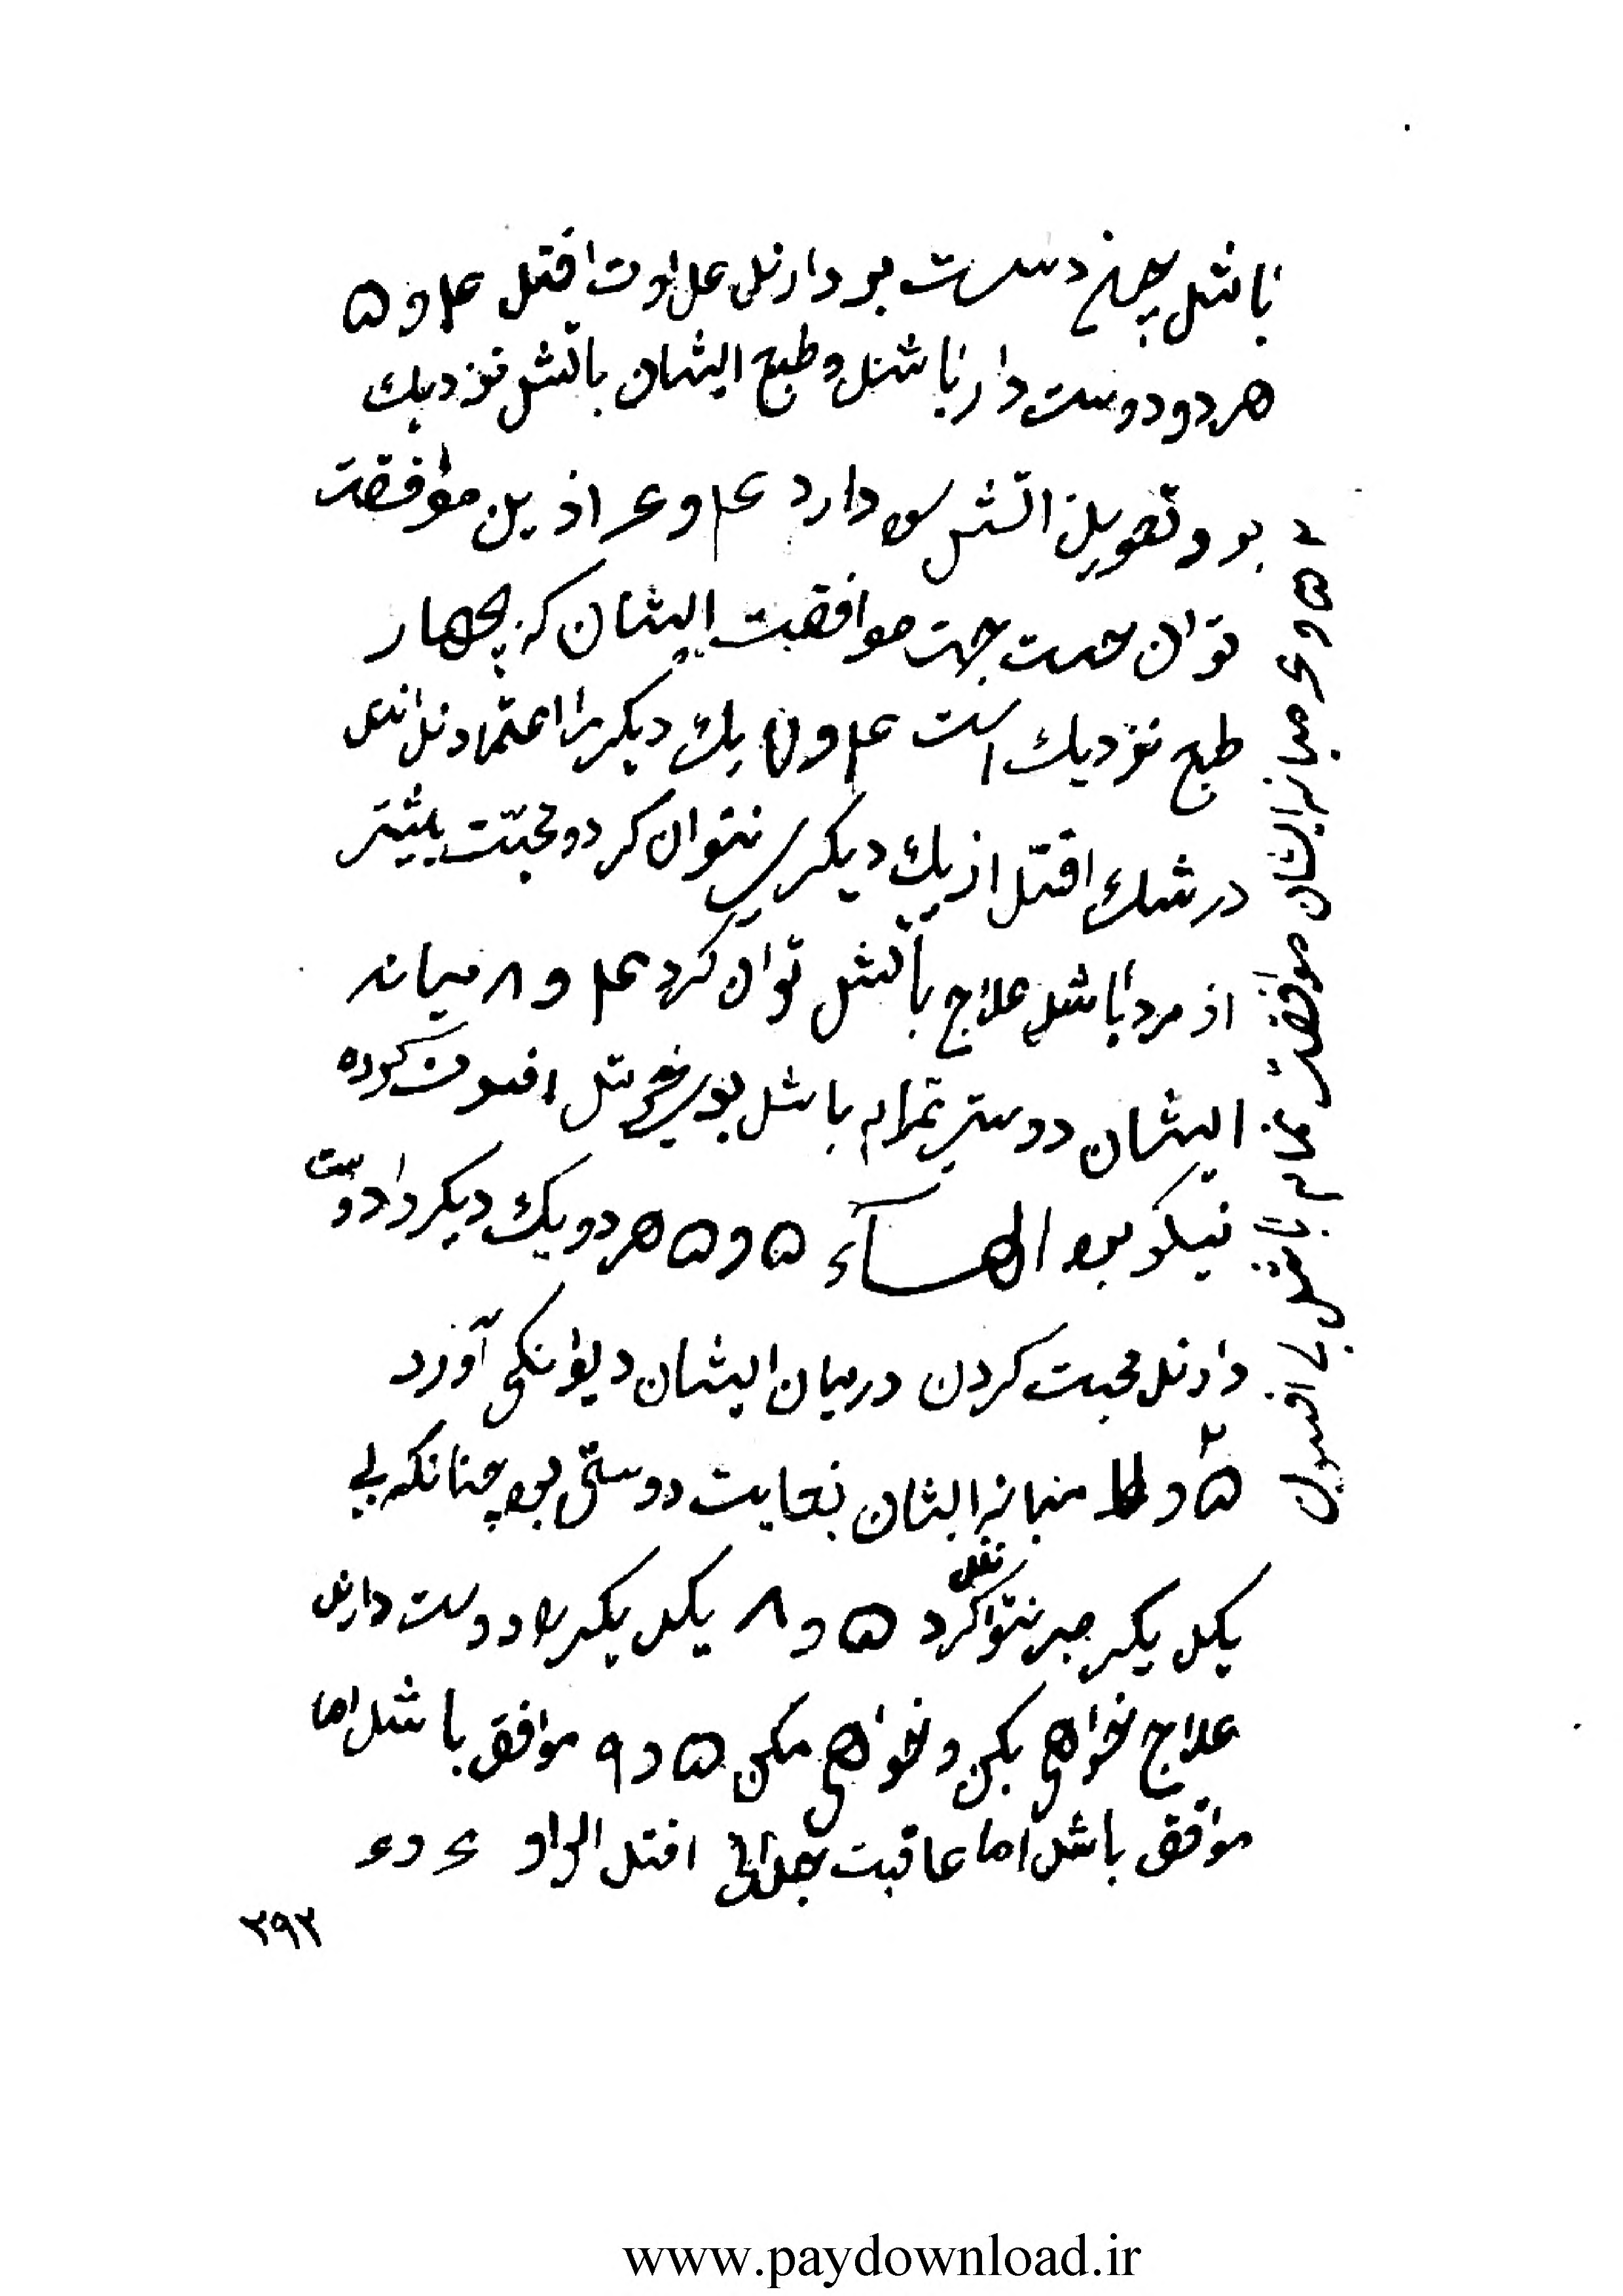 باشد چون دست بر دارند عداوت افتد ۴ و ۵
هر دو دوست دار باشند و طبع ایشان باتش نزدیك
بود و تعویذ اتش سود دارد ۴ و ۶ ازین موافقت
توان جست جهت موافقت ایشان که بچهار
طبع نزدیك است ۴ و ۷ یك دیکر را اعتماد ندانند
در شك افتد از یك دیکری نتوان کرد و محبّت بیشتر
از مرد باشد علاج باتش توان کرد ۴ و ۸ میانه
ایشان دوستی تمام باشد بوی خوش افسون کرده
نیکو بود الهاء ۵ و ۵ هر دو یك دیکر را دوست
دارند محبت کردن درمیان ایشان دیوانکی آورد
۲
۵ و ط میانه ایشان بغایت دوستی بود چنانکه بی
یکدیکر صبر نتوانند کرد ۵ و ۸ یکدیکر را دوست دارند
علاج خواهی بکن و خواهی مکن ۵ و ۹ موافق باشد اما
موافق باشد اما عاقبت جدائی افتد الواو ۶ و ۶
۵ و ۶ میانه ایشان موافقت تمام باشد با افسون
۲۹۲
www.paydownload.ir